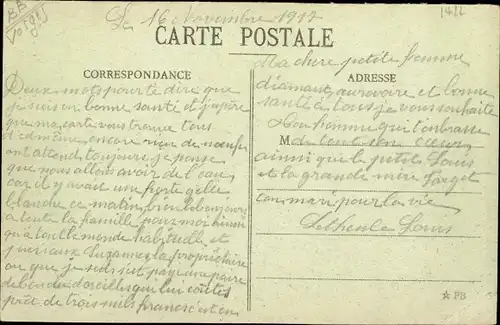 Le 16 Novembre 1917
CARTE POSTALE
CORRESPONDANCE
Deux mots pour te dire que
je suis en bonne santé et j'espère
que ma carte vous trouve tous
d'même encore rien de neuf on
attend toujours je pense
que nous allons avoir de l'eau
car il y avait une forte gelée
blanche ce matin bien le bonjour
a toute la famille pour moi ainsi
qu'à tout le monde habituelle et
Suzanne la propriétaire
que je suis une paire
de boucles d'oreilles qui lui coûtes
près de trois mils francs c'est en
Ma chère petite femme
ADRESSE
diamant aurevoire et bonne
santé à tous je vous souhaite
Ton homme qui t'embrasse
M de tout son cœur
ainsi que le petit Louis
et la grande mère
ton mari pour la vie
Louis
☆ PB